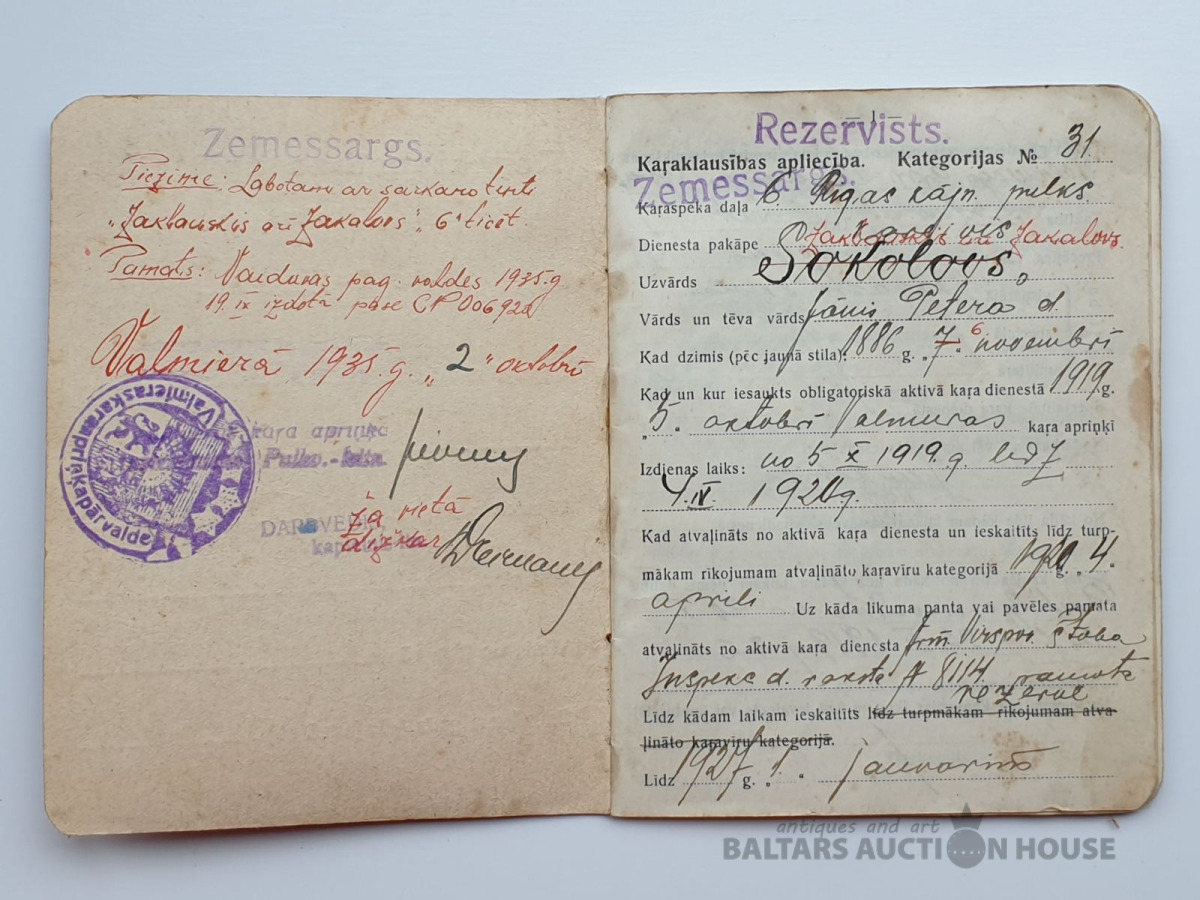 Zemessargs.
Piezīme: Labotam ar sarkano tinti
"Jakbauskis arī Jakalovs", "6" ticēt.
Pamats: Vaiduvas pag. valdes 1935.g.
19. IX izdotā pase CP 006920
Valmierā 1935.g. "2" oktobrī
Valmieras kara apriņķa pārvalde
kara apriņķa
Pulkv.-leitn.
Ža vietā
- 1 -
Rezervists.
Kaŗaklausības apliecība. Kategorijas № 31.
Zemessargs.
Kaŗaspēka daļa 6. Rīgas kājn. pulks
Dienesta pakāpe
Jakalovs.
Uzvārds Sokolovs
Vārds un tēva vārds Jānis Pētera d.
Kad dzimis (pēc jaunā stila): 1886 g. "7." 6 novembrī
Kad un kur iesaukts obligatoriskā aktivā kaŗa dienestā 1919 g.
"5." oktobrī Valmieras kaŗa apriņķī
Izdienas laiks: no 5 X 1919.g. līdz
4. IV. 1920g.
Kad atvaļināts no aktivā kaŗa dienesta un ieskaitīts līdz turp-
mākam rīkojumam atvaļināto kaŗavīru kategorijā 1920 g. "4.
aprīlī Uz kāda likuma panta vai pavēles pamata
atvaļināts no aktivā kaŗa dienesta Arm. Virspav. štaba
Inspekc. d. raksta № 8114. pamata
rezervē
Līdz kādam laikam ieskaitīts līdz turpmākam rīkojumam atva-
ļināto kaŗavīru kategorijā.
Līdz 1927 g. "1." janvarim
antiques and art
BALTARS AUCTION HOUSE